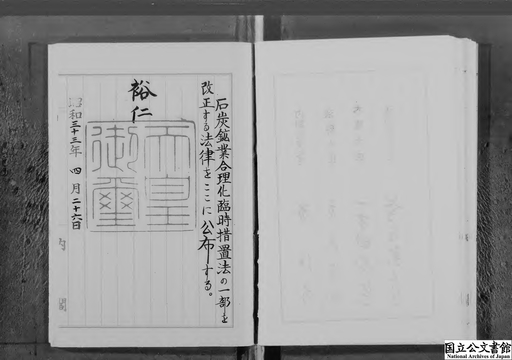 石炭鉱業合理化臨時措置法の一部を
改正する法律をここに公布する。
裕仁
天皇
御璽
昭和三十三年四月二十六日
内閣
国立公文書館
National Archives of Japan